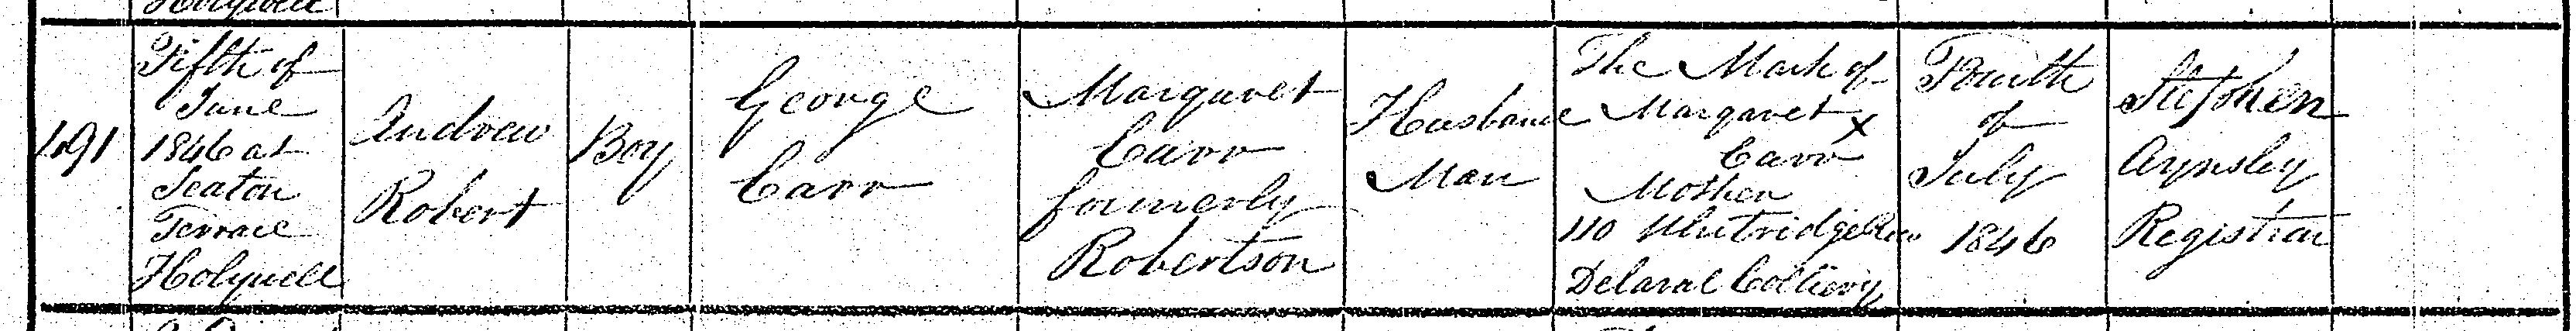 Holywell
491
Fifth of
June
1846 at
Seaton
Terrace
Holywell
Andrew
Robert
Boy
George
Carr
Margaret
Carr
formerly
Robertson
Husband
Man
The Mark of
Margaret X
Carr
Mother
110 Whitridge Row
Delaval Colliery
Fourth
of
July
1846
Stephen
Aynsley
Registrar